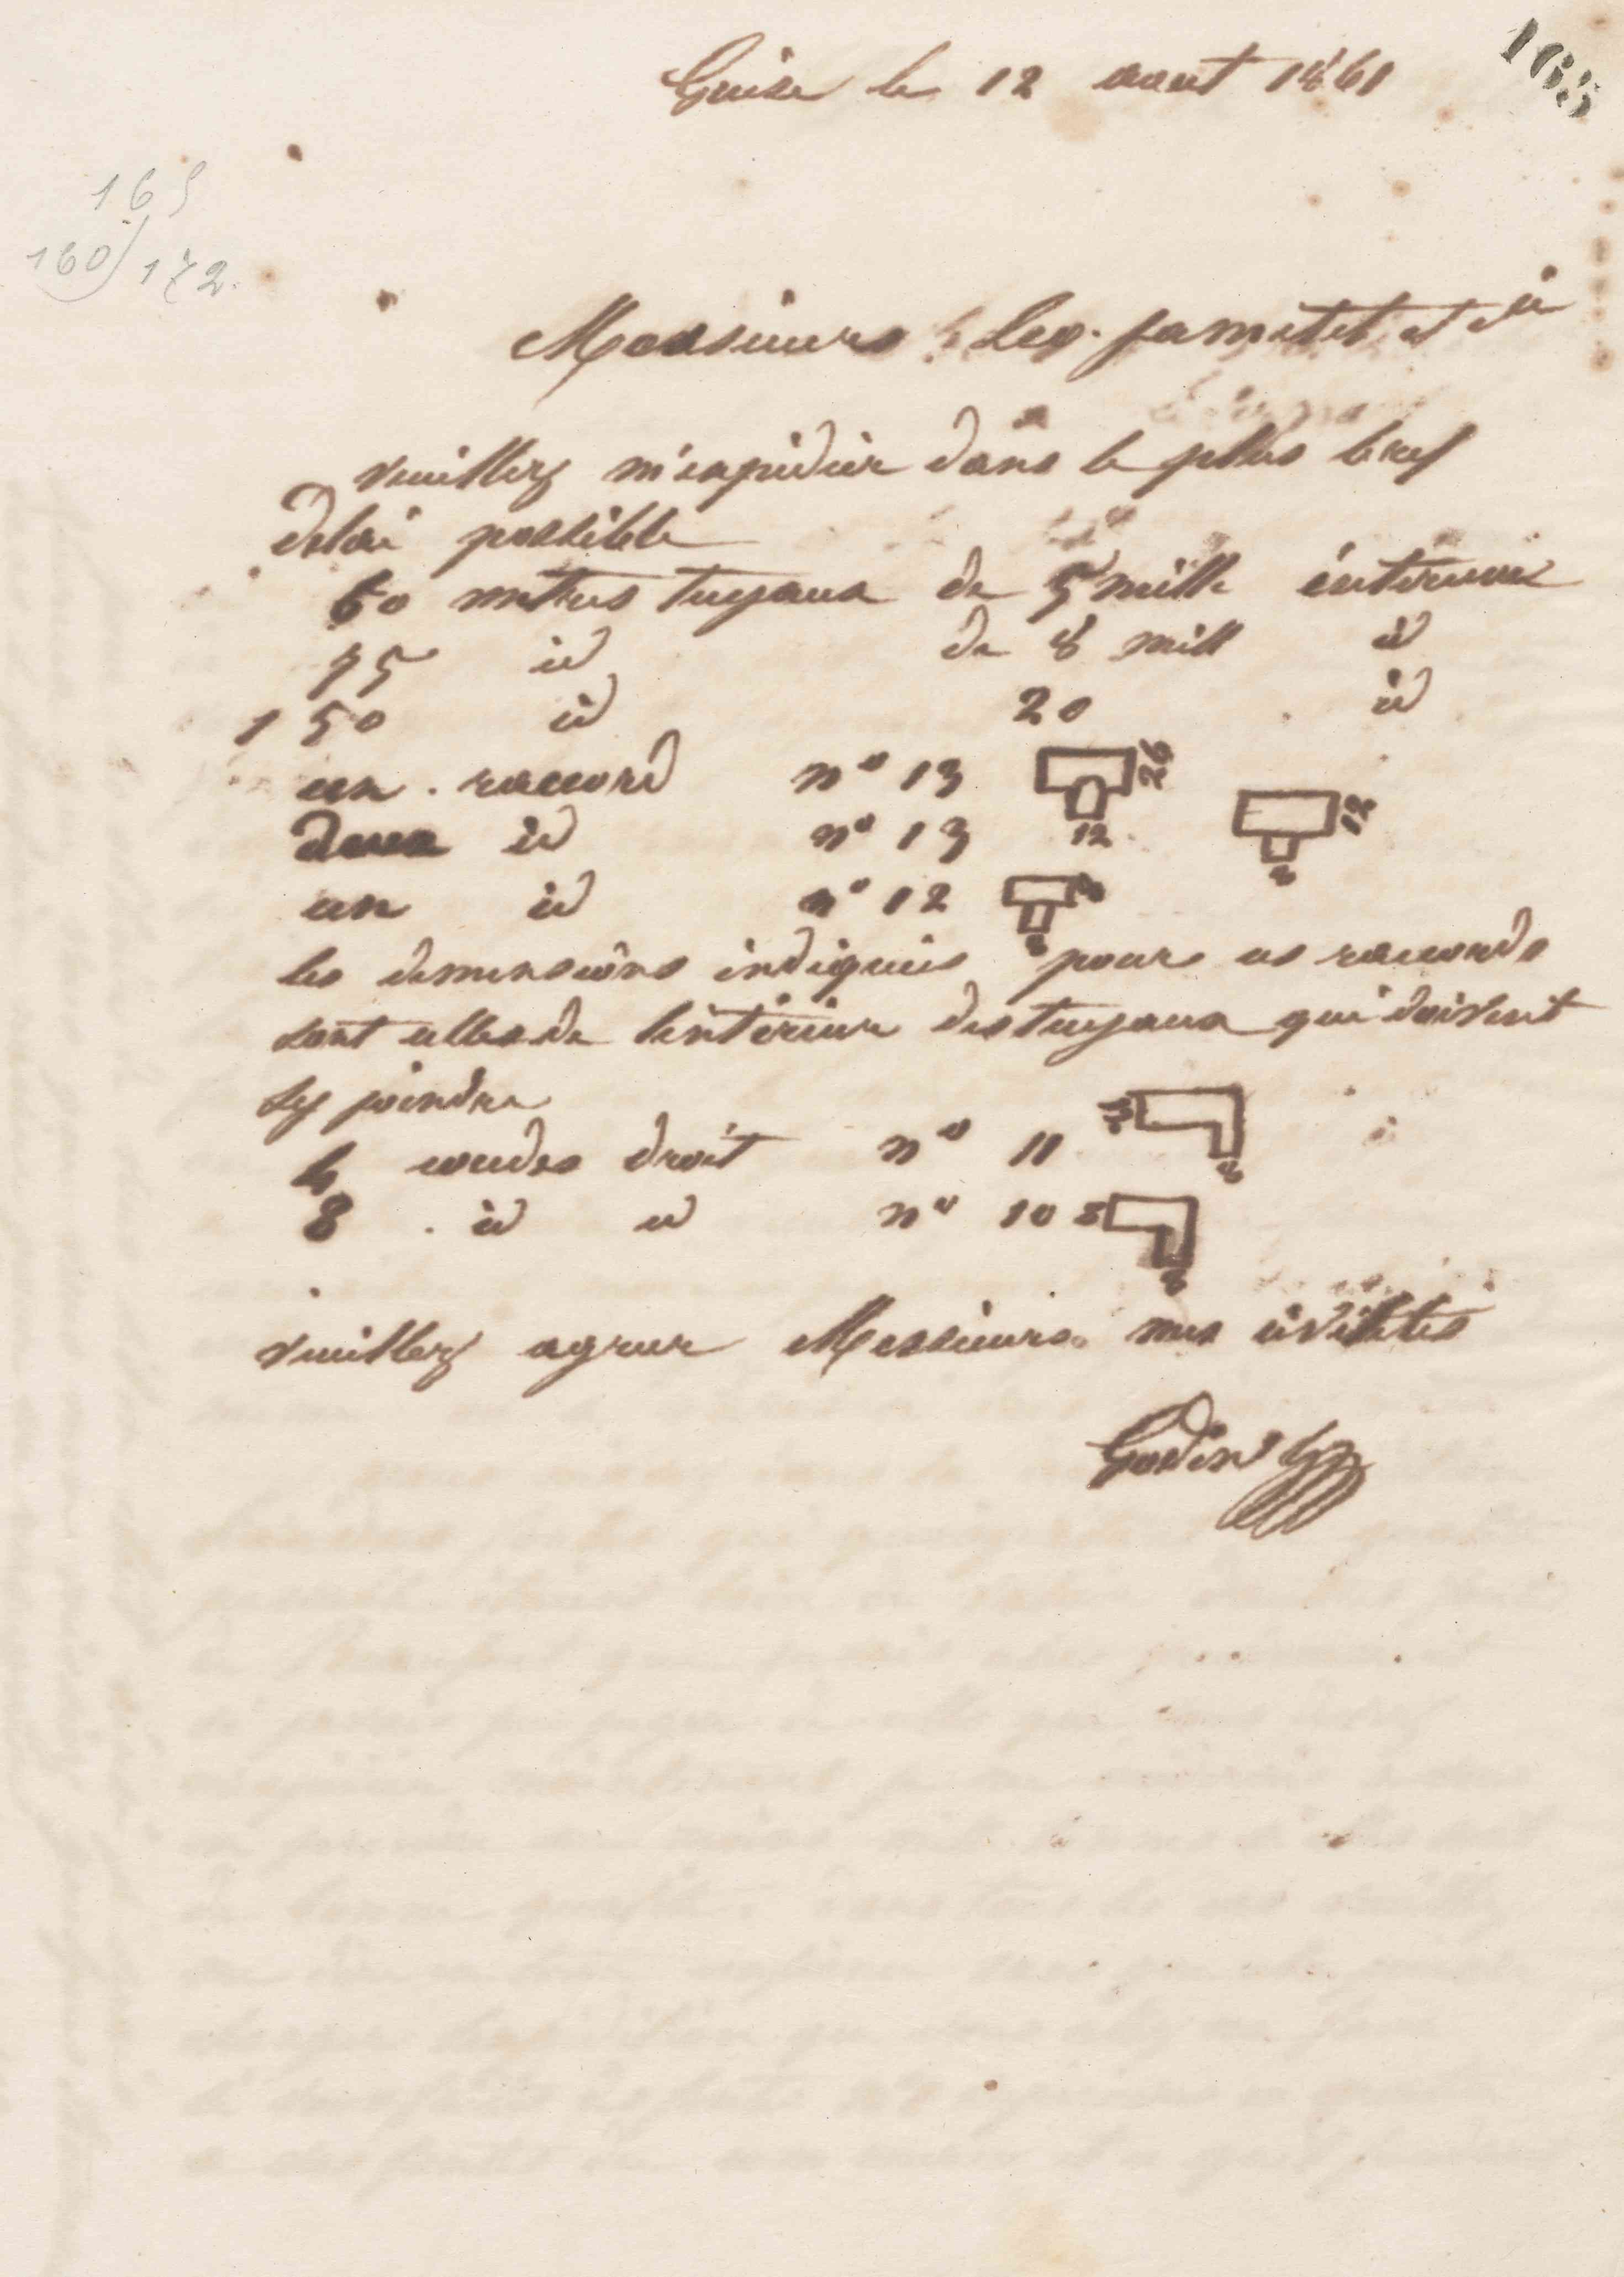 165
Guise le 12 aout 1861
165
160/172.
Messieurs Leg. jametet et cie
veuillez m'expédier dans le plus bref
delai possible
60 metres tuyaux de 5 mill interieur
75 id de 8 mill id
150 id 20 id
un raccord n° 13 26 12
deux id n° 13 12 8
un id n° 12 8
les dimensions indiquées pour ces raccords
sont celles de l'intérieur des tuyaux qui doivent
s'y joindre
4 coudes droit n° 11 8
8 id id n° 10 5
veuillez agreer Messieurs mes civilités
Godin